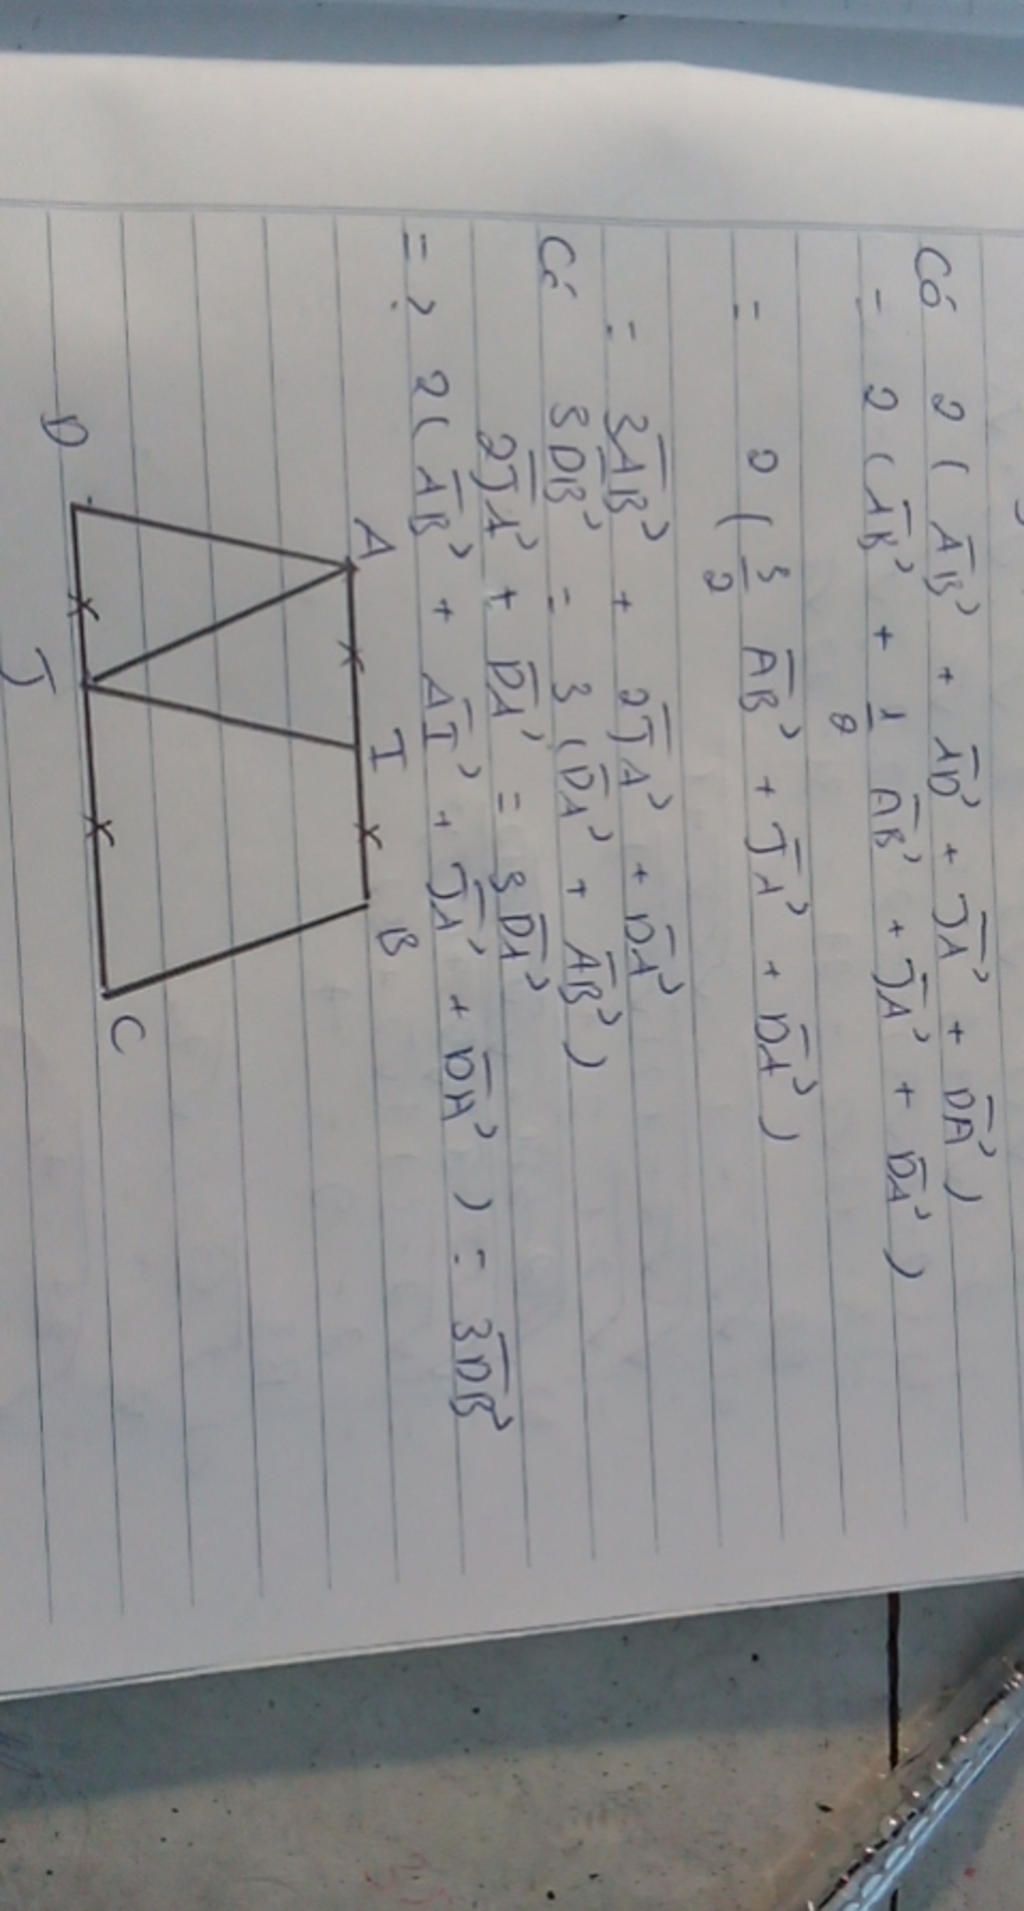 Có 2 ( A͞B' + A͞D' + J͞A' + D͞A' )
= 2 ( A͞B' + 1/2 A͞B' + J͞A' + D͞A' )
= 2 ( 3/2 A͞B' + J͞A' + D͞A' )
= 3A͞B' + 2J͞A' + D͞A'
Có 3D͞B' = 3 (D͞A' + A͞B' )
2J͞A' + D͞A' = 3D͞A'
=> 2( A͞B' + A͞I' + J͞A' + D͞A' ) = 3D͞B'
A I B
D J C